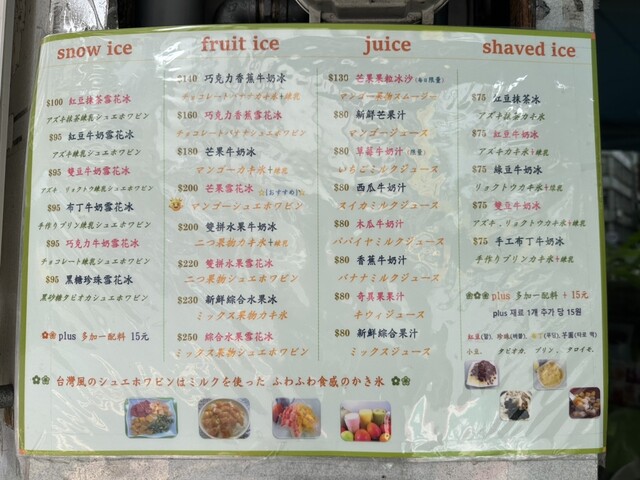 snow ice
$100 紅豆抹茶雪花冰
アズキ抹茶練乳シュエホワビン
$95 紅豆牛奶雪花冰
アズキ練乳シュエホワビン
$95 雙豆牛奶雪花冰
アズキ リョクトウ練乳シュエホワビン
$95 布丁牛奶雪花冰
手作りプリン練乳シュエホワビン
$95 巧克力牛奶雪花冰
チョコレート練乳シュエホワビン
$95 黑糖珍珠雪花冰
黒砂糖タピオカシュエホワビン
plus 多加一配料 15元
fruit ice
$140 巧克力香蕉牛奶冰
チョコレートバナナカキ氷+練乳
$160 巧克力香蕉雪花冰
$180 芒果牛奶冰
マンゴーカキ氷+練乳
$200 芒果雪花冰 ☆|おすすめ|
マンゴーシュエホワビン
$200 雙拼水果牛奶冰
二つ果物カキ氷+練乳
$220 雙拼水果雪花冰
二つ果物シュエホワビン
$230 新鮮綜合水果冰
ミックス果物カキ氷
$250 綜合水果雪花冰
ミックス果物シュエホワビン
juice
$130 芒果果粒冰沙 限量)
マンゴー果物スムージー
$80 新鮮芒果汁
マンゴージュース
$80 草莓牛奶汁 (限量)
いちごミルクジュース
$80 西瓜牛奶汁
スイカミルクジュース
$80 木瓜牛奶汁
パパイヤミルクジュース
$80 香蕉牛奶汁
バナナミルクジュース
$80 奇異果果汁
キウィジュース
$80 新鮮綜合果汁
ミックスジュース
shaved ice
$75 紅豆抹茶冰
アズキ抹茶カキ氷
$75 紅豆牛奶冰
アズキカキ氷+練乳
$75 綠豆牛奶冰
リョクトウカキ氷+練乳
$75 雙豆牛奶冰
アズキ、リョクトウカキ氷+練乳
$75 手工布丁牛奶冰
手作りプリンカキ氷+練乳
plus 多加一配料 + 15元
plus 재료 1개 추가 당 15원
紅豆(팥), 珍珠(버블), 布丁(푸딩), 芋圓(타로 떡)
小豆、 タピオカ、 プリン 、タロイモ、
台灣風のシュエホワビンはミルクを使った ふわふわ食感のかき氷